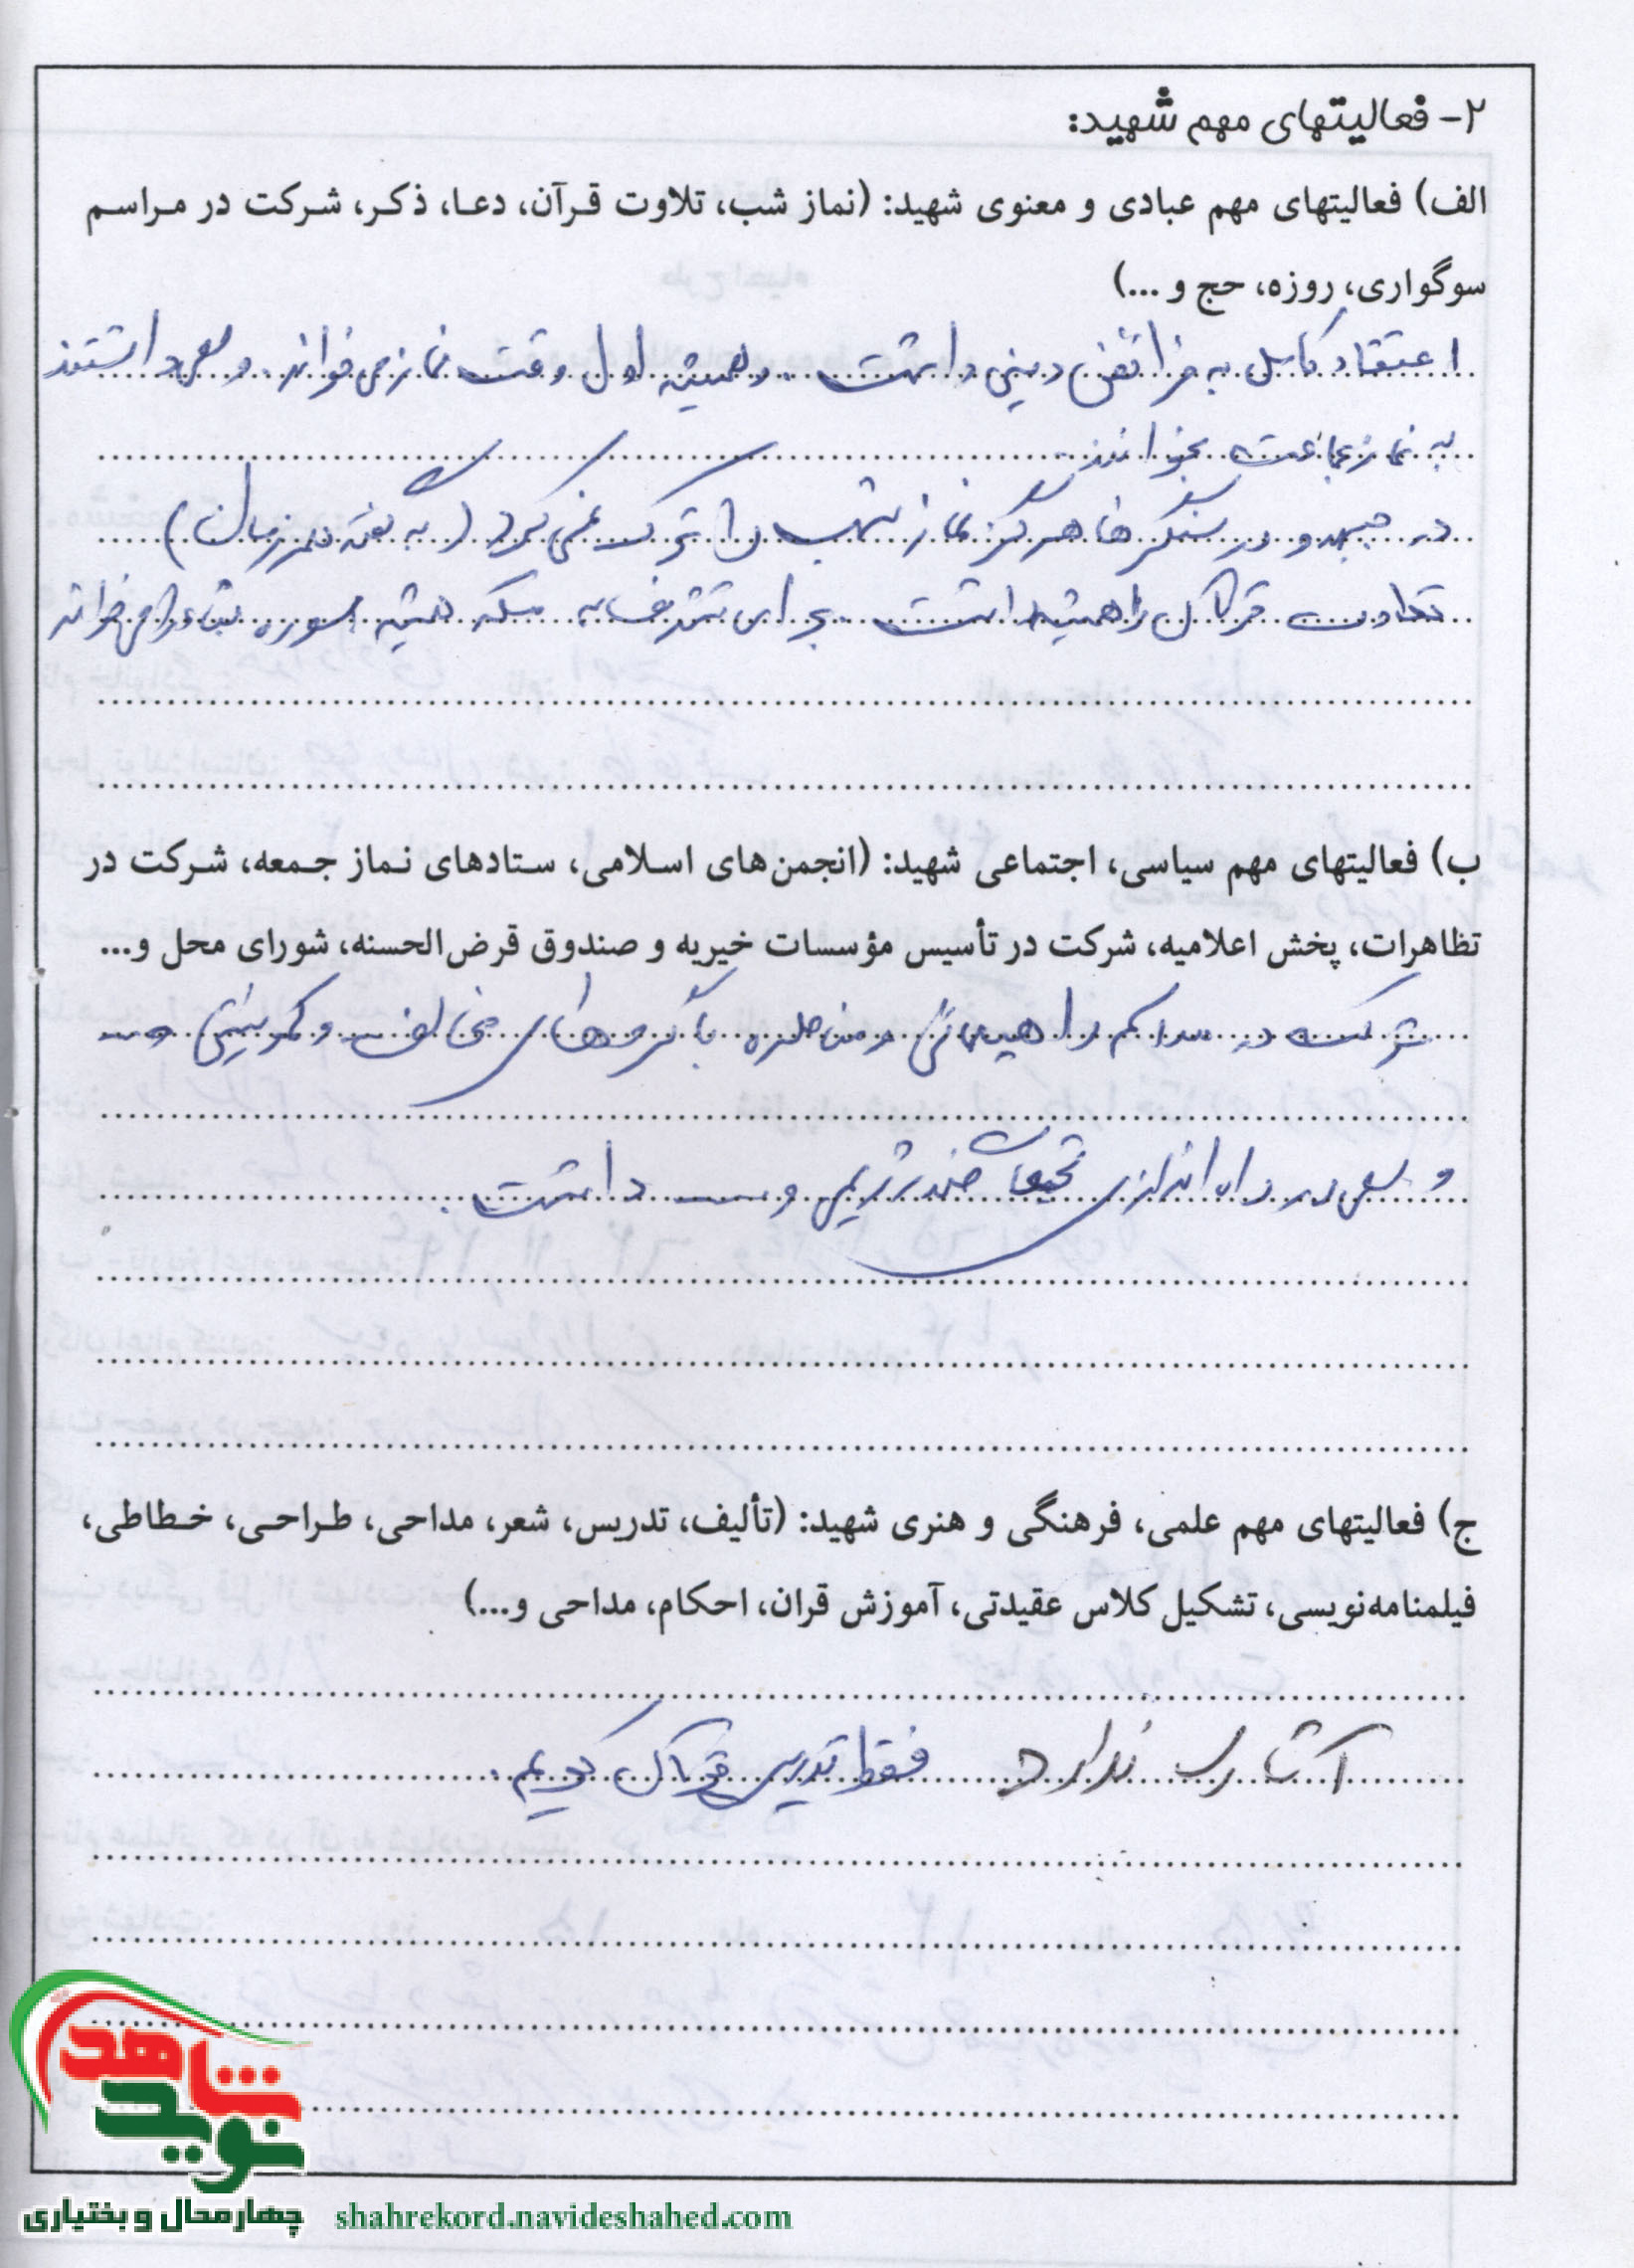 ۲- فعالیتهای مهم شهید:
الف) فعالیتهای مهم عبادی و معنوی شهید: (نماز شب، تلاوت قرآن، دعا، ذکر، شرکت در مراسم
سوگواری، روزه، حج و ...)
اعتقاد کامل به فرائض دینی داشت. و همیشه اول وقت نماز می خواند. و سعی داشتند
به نماز جماعت بخوانند.
در جبهه و در سنگرها هرگز نماز شب را ترک نمی کرد (به گفته همرزمان)
تلاوت قرآن را همیشه داشت. همیشه سوره را می خواند
ب) فعالیتهای مهم سیاسی، اجتماعی شهید: (انجمن‌های اسلامی، ستادهای نماز جمعه، شرکت در
تظاهرات، پخش اعلامیه، شرکت در تأسیس مؤسسات خیریه و صندوق قرض‌الحسنه، شورای محل و...
شرکت در راهپیمائی و مناظره با گروههای مخالف و کمونیستی و
و سعی در راه اندازی ضد رژیم و داشت.
ج) فعالیتهای مهم علمی، فرهنگی و هنری شهید: (تألیف، تدریس، شعر، مداحی، طراحی، خطاطی،
فیلمنامه‌نویسی، تشکیل کلاس عقیدتی، آموزش قران، احکام، مداحی و...)
آثاری ندارد فقط تدریس قرآن کریم.
شاهد
نوید
چهارمحال و بختیاری
shahrekord.navideshahed.com